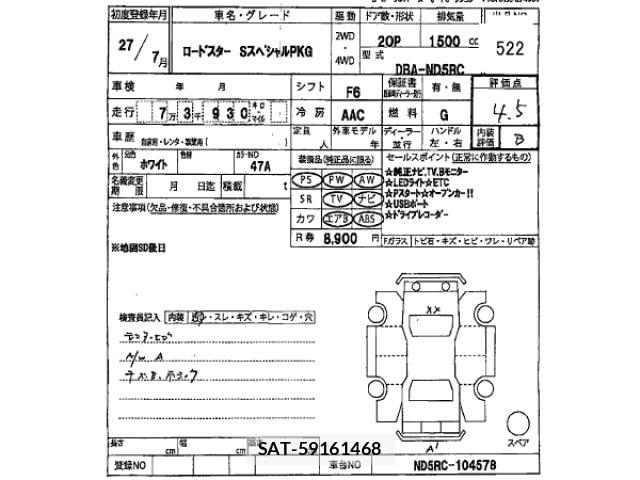 初度登録年月 車名・グレード 駆動 ドア数・形状 排気量
27/7月 ロードスター SスペシャルPKG 2WD・4WD 2OP 1500 cc 522
型式 DBA-ND5RC
車検 年 月 シフト F6 保証書 有・無 評価点 4.5
走行 7万3千930 キロ マイル 冷房 AAC 燃料 G 内装評価 B
車歴 自家用・レンタ・事業用( 定員 人 外車モデル 年 ディーラー・並行 ハンドル 左・右
外色 元色 ホワイト 色替 カラーNO 47A 装備品(純正品に限る) セールスポイント(正常に作動するもの)
名義変更期限 月 日迄 積載 t PS PW AW ☆純正ナビ,TV,Bモニター
☆LEDライト☆ETC
注意事項(欠品・修復・不具合箇所および状態) SR TV ナビ ☆Pスタート☆オープンカー!!
☆USBポート
カワ エアB ABS ☆ドライブレコーダー
R券 8,900 円 Fガラス トビ石・キズ・ヒビ・ワレ・リペア跡
※地図SD後日
検査員記入 内装 ・スレ・キズ・キレ・コゲ・穴
XX
A
A1
スペア
長さ cm 幅 cm 高さ SAT-59161468
登録NO 車台NO ND5RC-104578